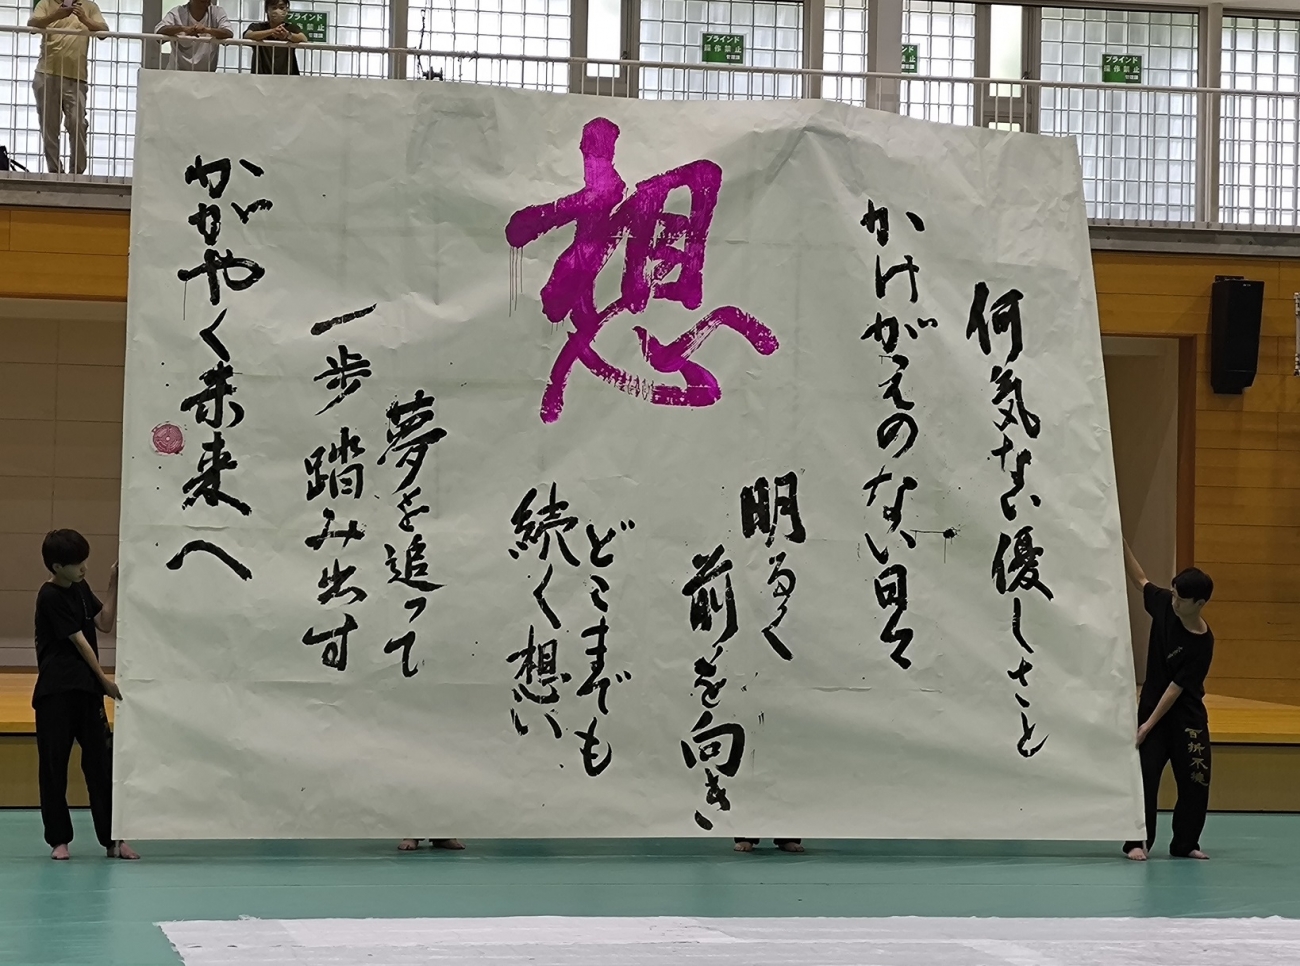 何気ない優しさと
かけがえのない日々
想
明るく
前を向き
どこまでも
続く想い
夢を追って
一歩踏み出す
かがやく未来へ
ブラインド
操作禁止
ブラインド
操作禁止
ブラインド
操作禁止